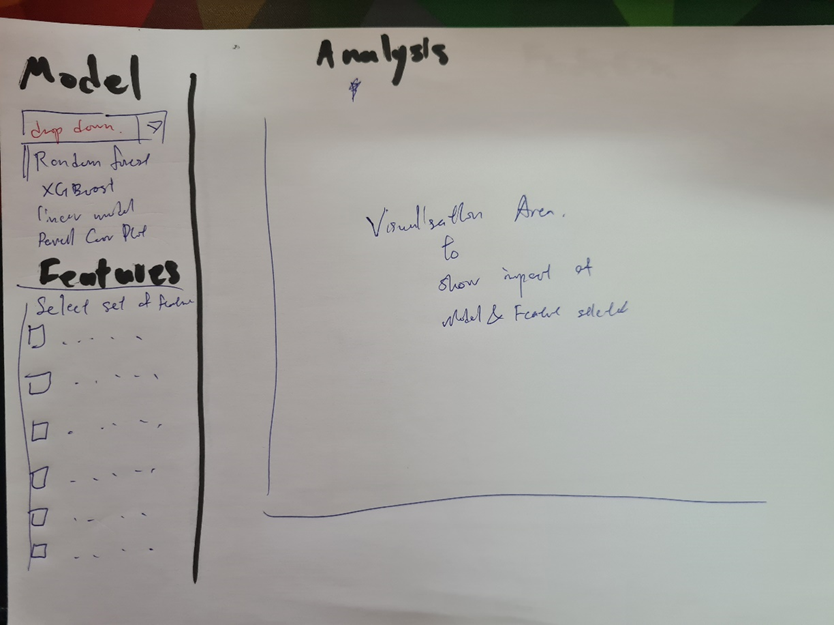 Model
drop down.
Random forest
XGBoost
linear model
Features
Select set of feature
Analysis
Visualisation Area.
to
show impact of
Model & Feature selected